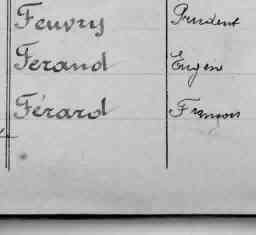 Feuvry Prudent
Ferand Eugène
Férard François